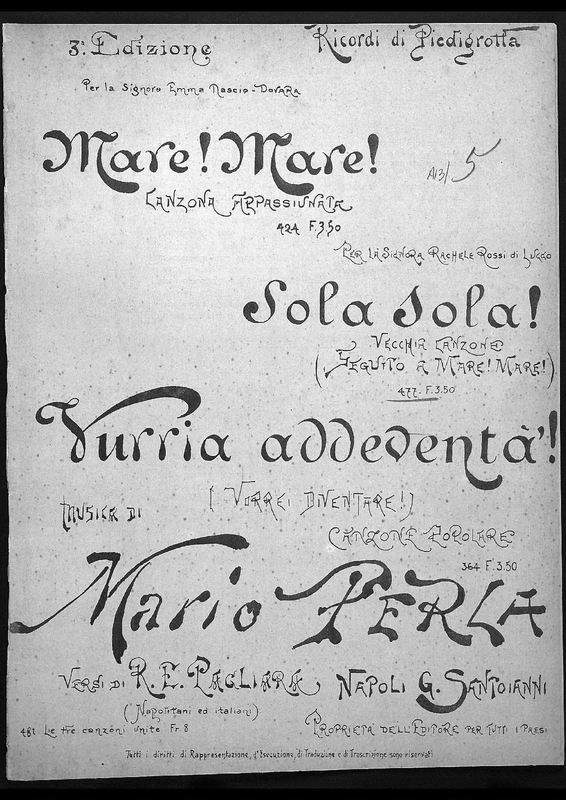 3ª Edizione
Ricordi di Piedigrotta
Per la Signora Emma Nascio-Dovara
Mare! Mare!
CANZONA APPASSIUNATA
424 F.3,50
5
PER LA SIGNORA RACHELE ROSSI di LUGGO
Sola Sola!
VECCHIA CANZONE
(SEGUITO A MARE! MARE!)
477. F.3.50
Vurria addeventà'!
(VORREI DIVENTARE!)
MUSICA DI
CANZONE POPOLARE
364 F.3.50
Mario PERLA
VERSI DI R. E. PAGLIARA
NAPOLI G. SANTOIANNI
(Napolitani ed italiani)
481. Le tre canzoni unite Fr. 8
PROPRIETÀ DELL'EDITORE PER TUTTI I PAESI
Tutti i diritti di Rappresentazione, d'Esecuzione, di Traduzione e di Trascrizione sono riservati